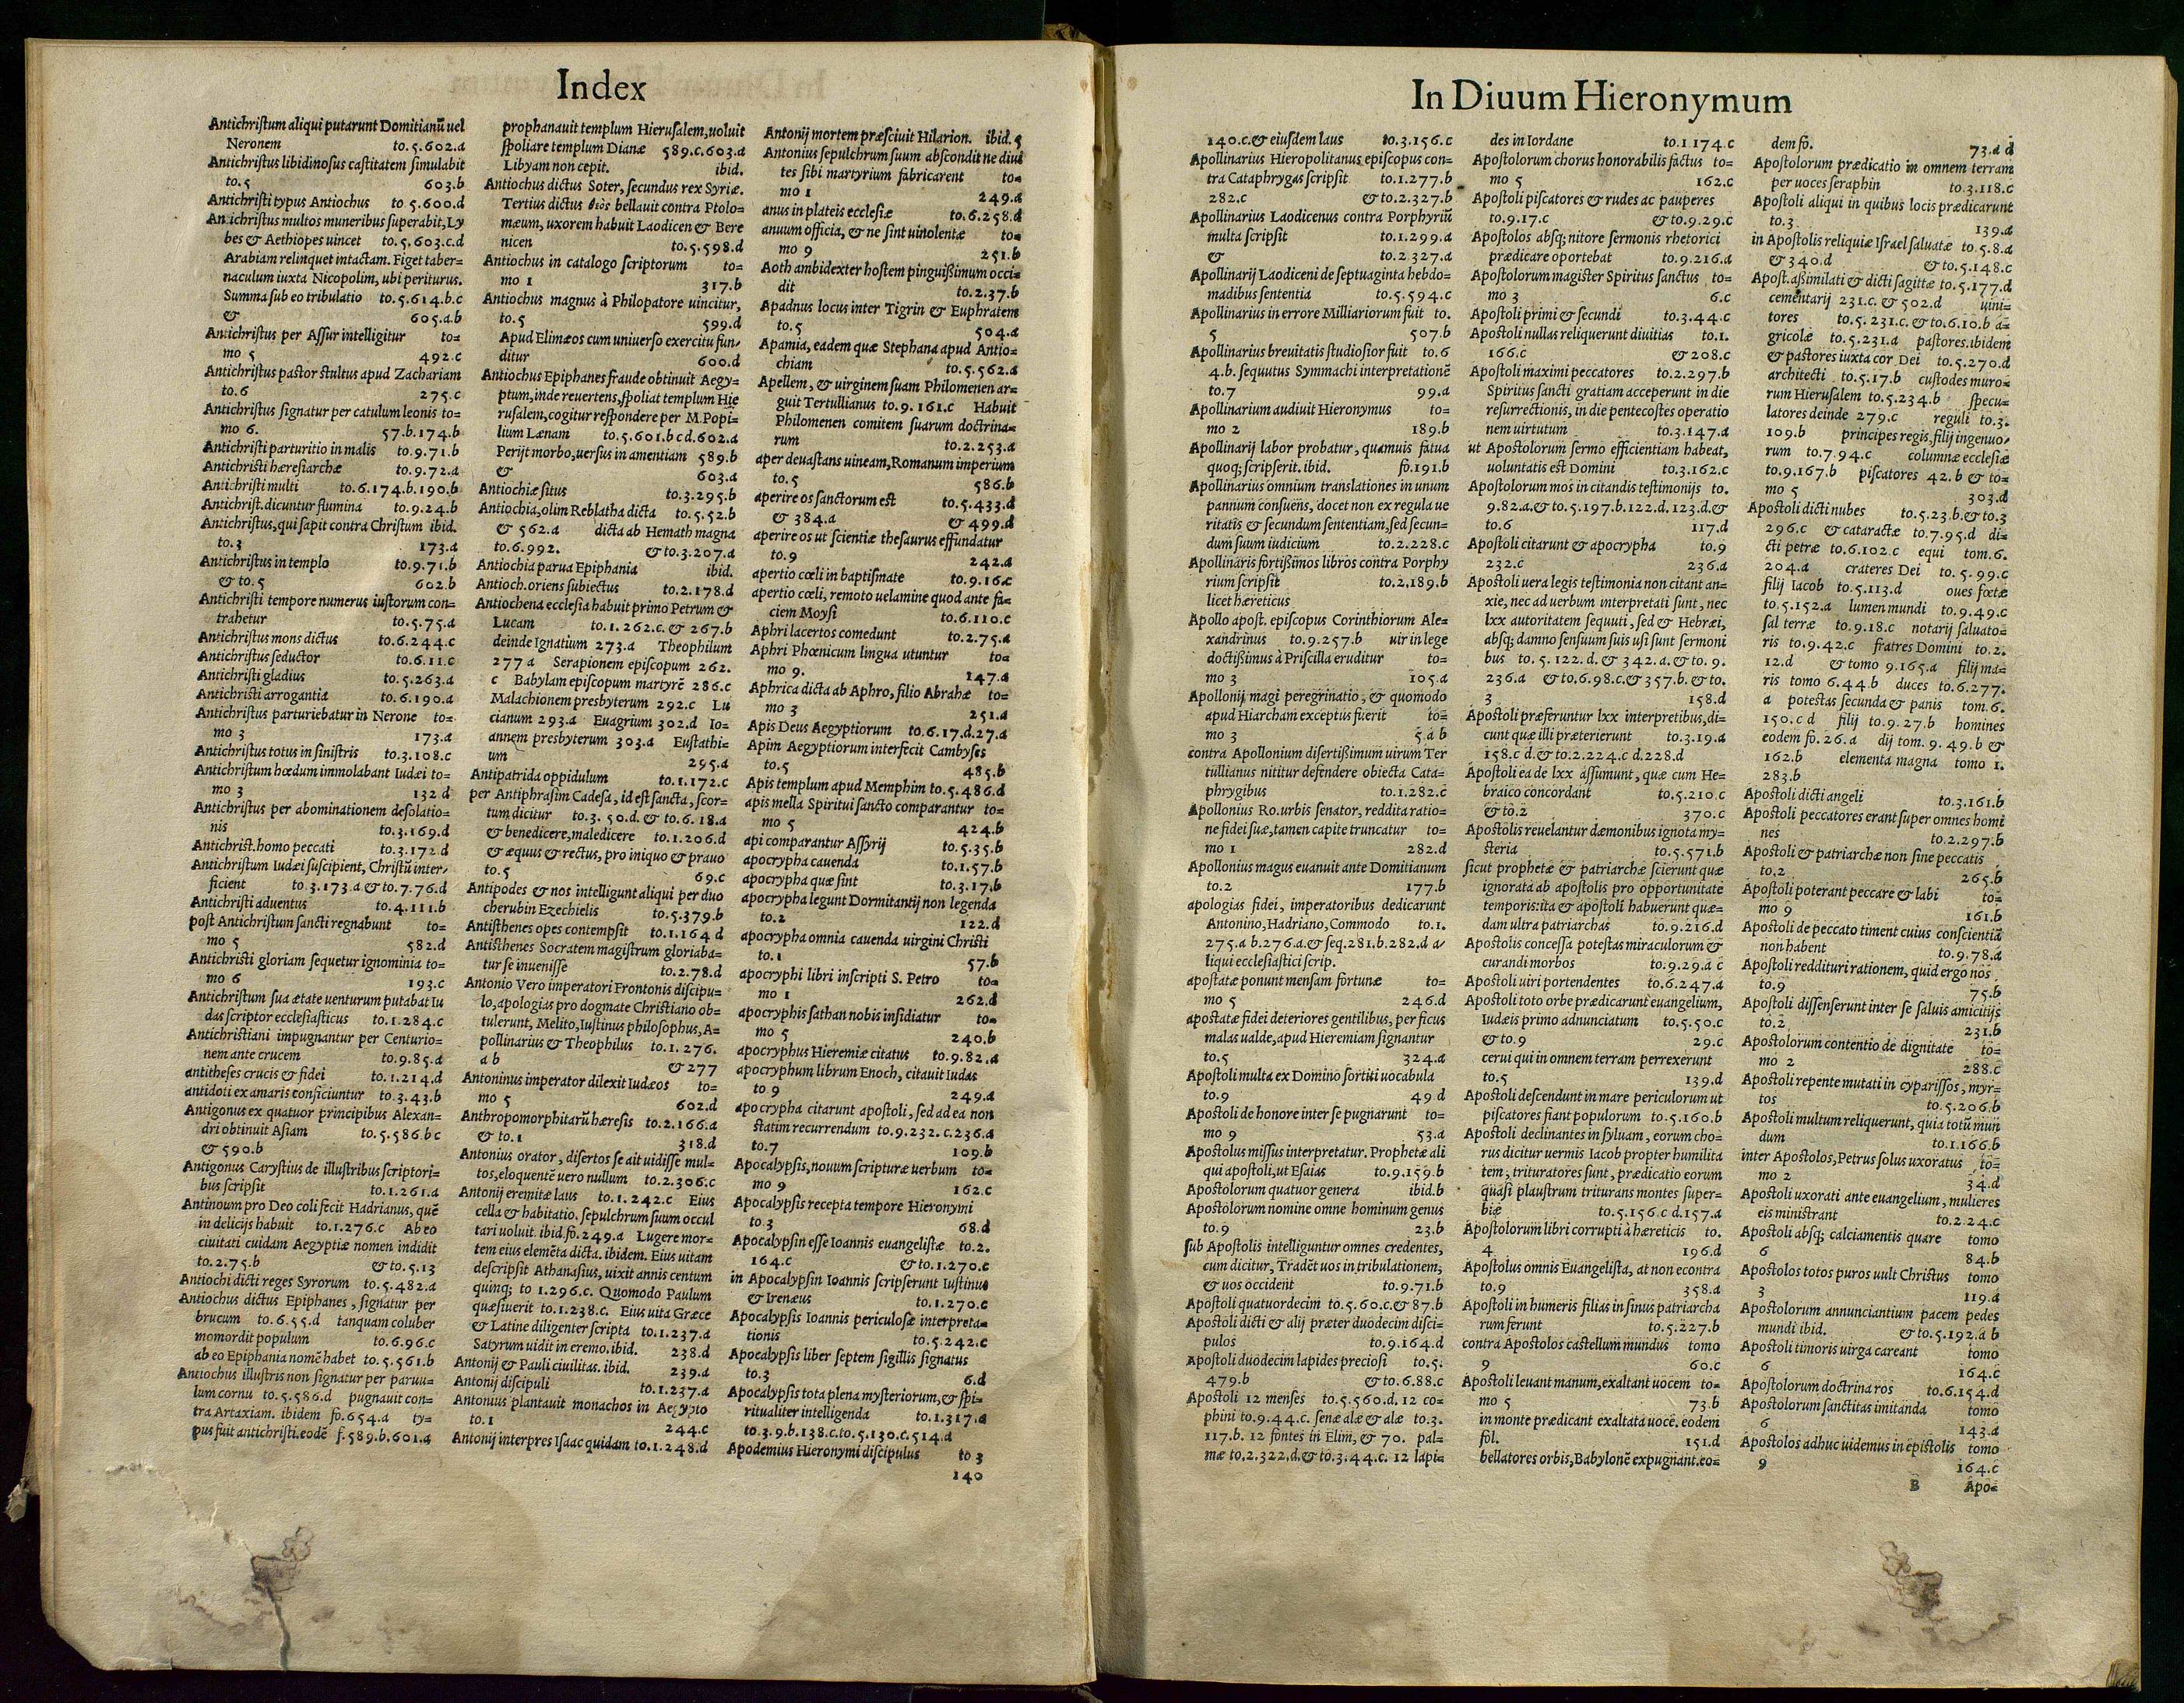 Index
Antichriſtum aliqui putarunt Domitianũ uel
Neronem to.5.602.a
Antichriſtus libidinoſus caſtitatem ſimulabit
to.5 603.b
Antichriſti typus Antiochus to 5.600.d
Antichriſtus multos muneribus ſuperabit, Ly
bes & Aethiopes uincet to.5.603.c.d
Arabiam relinquet intactam. Figet taber=
naculum iuxta Nicopolim, ubi periturus.
Summa ſub eo tribulatio to.5.614.b.c
& 605.a.b
Antichriſtus per Aſſur intelligitur to=
mo 5 492.c
Antichriſtus paſtor ſtultus apud Zachariam
to.6 275.c
Antichriſtus ſignatur per catulum leonis to=
mo 6. 57.b.174.b
Antichriſti parturitio in malis to.9.71.b
Antichriſti hæreſiarchæ to.9.72.a
Antichriſti multi to.6.174.b.190.b
Antichriſt.dicuntur flumina to.9.24.b
Antichriſtus, qui ſapit contra Chriſtum ibid.
to.3 173.a
Antichriſtus in templo to.9.71.b
& to.5 602.b
Antichriſti tempore numerus iuſtorum con=
trahetur to.5.75.a
Antichriſtus mons dictus to.6.244.c
Antichriſtus ſeductor to.6.11.c
Antichriſti gladius to.5.263.a
Antichriſti arrogantia to.6.190.a
Antichriſtus parturiebatur in Nerone to=
mo 3 173.a
Antichriſtus totus in ſiniſtris to.3.108.c
Antichriſtum hœdum immolabant Iudæi to=
mo 3 132 d
Antichriſtus per abominationem deſolatio=
nis to.3.169.d
Antichriſt.homo peccati to.3.172.d
Antichriſtum Iudæi ſuſcipient, Chriſtũ inter-
ficient to.3.173.a & to.7.76.d
Antichriſti aduentus to.4.111.b
poſt Antichriſtum ſancti regnabunt to=
mo 5 582.d
Antichriſti gloriam ſequetur ignominia to=
mo 6 193.c
Antichriſtum ſua ætate uenturum putabat Iu
das ſcriptor eccleſiaſticus to.1.284.c
Antichriſtiani impugnantur per Centurio=
nem ante crucem to.9.85.a
antitheſes crucis & fidei to.1.214.d
antidoti ex amaris conficiuntur to.3.43.b
Antigonus ex quatuor principibus Alexan=
dri obtinuit Aſiam to.5.586.b c
& 590.b
Antigonus Caryſtius de illuſtribus ſcriptori=
bus ſcripſit to.1.261.a
Antinoum pro Deo coli fecit Hadrianus, quẽ
in delicijs habuit to.1.276.c Ab eo
ciuitati cuidam Aegyptiæ nomen indidit
to.2.75.b & to.5.13
Antiochi dicti reges Syrorum to.5.482.a
Antiochus dictus Epiphanes, ſignatur per
brucum to.6.55.d tanquam coluber
momordit populum to.6.96.c
ab eo Epiphania nomẽ habet to.5.561.b
Antiochus illuſtris non ſignatur per paruu=
lum cornu to.5.586.d pugnauit con=
tra Artaxiam. ibidem fo.654.a ty=
pus fuit antichriſti.eodẽ f.589.b.601.a
prophanauit templum Hieruſalem, uoluit
ſpoliare templum Dianæ 589.c.603.a
Libyam non cepit. ibid.
Antiochus dictus Soter, ſecundus rex Syriæ.
Tertius dictus bellauit contra Ptolo=
mæum, uxorem habuit Laodicen & Bere
nicen to.5.598.d
Antiochus in catalogo ſcriptorum to=
mo 1 317.b
Antiochus magnus à Philopatore uincitur,
to.5 599.d
Apud Elimæos cum uniuerſo exercitu fun-
ditur 600.d
Antiochus Epiphanes fraude obtinuit Aegy=
ptum, inde reuertens, ſpoliat templum Hie
ruſalem, cogitur reſpondere per M. Popi=
lium Lænam to.5.601.b c d.602.a
Perijt morbo, uerſus in amentiam 589.b
& 603.a
Antiochiæ ſitus to.3.295.b
Antiochia, olim Reblatha dicta to.5.52.b
& 562.a dicta ab Hemath magna
to.6.992. & to.3.207.a
Antiochia parua Epiphania ibid.
Antioch.oriens ſubiectus to.2.178.d
Antiochena eccleſia habuit primo Petrum &
Lucam to.1.262.c.& 267.b
deinde Ignatium 273.a Theophilum
277 a Serapionem epiſcopum 262.
c Babylam epiſcopum martyrẽ 286.c
Malachionem presbyterum 292.c Lu
cianum 293.a Euagrium 302.d Io=
annem presbyterum 303.a Euſtathi=
um 295.a
Antipatrida oppidulum to.1.172.c
per Antiphraſim Cadeſa, id eſt ſancta, ſcor=
tum dicitur to.3.50.d.& to.6.18.a
& benedicere, maledicere to.1.206.d
& æquus & rectus, pro iniquo & prauo
to.5 69.c
Antipodes & nos intelligunt aliqui per duo
cherubin Ezechielis to.5.379.b
Antiſthenes opes contempſit to.1.164 d
Antiſthenes Socratem magiſtrum gloriaba=
tur ſe inueniſſe to.2.78.d
Antonio Vero imperatori Frontonis diſcipu=
lo, apologias pro dogmate Chriſtiano ob=
tulerunt, Melito, Iuſtinus philoſophus, A=
pollinarius & Theophilus to.1.276.
a b & 277
Antoninus imperator dilexit Iudæos to=
mo 5 602.d
Anthropomorphitarũ hæreſis to.2.166.a
& to.1 318.d
Antonius orator, diſertos ſe ait uidiſſe mul=
tos, eloquentẽ uero nullum to.2.306.c
Antonij eremitæ laus to.1.242.c Eius
cella & habitatio. ſepulchrum ſuum occul
tari uoluit. ibid.fo.249.a Lugere mor=
tem eius elemẽta dicta. ibidem. Eius uitam
deſcripſit Athanaſius, uixit annis centum
quinq; to 1.296.c. Quomodo Paulum
quæſiuerit to.1.238.c. Eius uita Græce
& Latine diligenter ſcripta to.1.237.a
Satyrum uidit in eremo.ibid. 238.d
Antonij & Pauli ciuilitas. ibid. 239.a
Antonij diſcipuli to.1.237.a
Antonius plantauit monachos in Aegypto
to.1 244.c
Antonij interpres Iſaac quidam to.1.248.d
Antonij mortem præſciuit Hilarion. ibid.
Antonius ſepulchrum ſuum abſcondit ne diui
tes ſibi martyrium fabricarent to=
mo 1 249.a
anus in plateis eccleſiæ to.6.258.d
anuum officia, & ne ſint uinolentæ to=
mo 9 251.b
Aoth ambidexter hoſtem pinguißimum occi=
dit to.2.37.b
Apadnus locus inter Tigrin & Euphratem
to.5 504.a
Apamia, eadem quæ Stephana apud Antio=
chiam to.5.562.a
Apellem, & uirginem ſuam Philomenen ar=
guit Tertullianus to.9.161.c Habuit
Philomenen comitem ſuarum doctrina=
rum to.2.253.a
aper deuaſtans uineam, Romanum imperium
to.5 586.b
aperire os ſanctorum eſt to.5.433.d
& 384.a & 499.d
aperire os ut ſcientiæ theſaurus effundatur
to.9 242.a
apertio cœli in baptiſmate to.9.16.c
apertio cœli, remoto uelamine quod ante fa=
ciem Moyſi to.6.110.c
Aphri lacertos comedunt to.2.75.a
Aphri Phœnicum lingua utuntur to=
mo 9. 147.a
Aphrica dicta ab Aphro, filio Abrahæ to=
mo 3 251.a
Apis Deus Aegyptiorum to.6.17.d.27.a
Apim Aegyptiorum interfecit Cambyſes
to.5 485.b
Apis templum apud Memphim to.5.486.d
apis mella Spiritui ſancto comparantur to=
mo 5 424.b
api comparantur Aſſyrij to.5.35.b
apocrypha cauenda to.1.57.b
apocrypha quæ ſint to.3.17.b
apocrypha legunt Dormitantij non legenda
to.2 122.d
apocrypha omnia cauenda uirgini Chriſti
to.1 57.b
apocryphi libri inſcripti S. Petro to=
mo 1 262.d
apocryphis ſathan nobis inſidiatur to=
mo 5 240.b
apocryphus Hieremiæ citatus to.9.82.a
apocryphum librum Enoch, citauit Iudas
to 9 249.a
apocrypha citarunt apoſtoli, ſed ad ea non
ſtatim recurrendum to.9.232.c.236.a
to.7 109.b
Apocalypſis, nouum ſcripturæ uerbum to=
mo 9 162.c
Apocalypſis recepta tempore Hieronymi
to 3 68.d
Apocalypſin eſſe Ioannis euangeliſtæ to.2.
164.c & to.1.270.c
in Apocalypſin Ioannis ſcripſerunt Iuſtinus
& Irenæus to.1.270.c
Apocalypſis Ioannis periculoſæ interpreta=
tionis to.5.242.c
Apocalypſis liber ſeptem ſigillis ſignatus
to.3 6.d
Apocalypſis tota plena myſteriorum, & ſpi=
ritualiter intelligenda to.1.317.a
to.3.9.b.138.c.to.5.130.c.514.d
Apodemius Hieronymi diſcipulus to 3
140
In Diuum Hieronymum
140.c.& eiuſdem laus to.3.156.c
Apollinarius Hieropolitanus epiſcopus con=
tra Cataphrygas ſcripſit to.1.277.b
282.c & to.2.327.b
Apollinarius Laodicenus contra Porphyriũ
multa ſcripſit to.1.299.a
& to.2.327.a
Apollinarij Laodiceni de ſeptuaginta hebdo=
madibus ſententia to.5.594.c
Apollinarius in errore Milliariorum fuit to.
5 507.b
Apollinarius breuitatis ſtudioſior fuit to.6
4.b. ſequutus Symmachi interpretationẽ
to.7 99.a
Apollinarium audiuit Hieronymus to=
mo 2 189.b
Apollinarij labor probatur, quamuis fatua
quoq; ſcripſerit. ibid. fo.191.b
Apollinarius omnium translationes in unum
pannum conſuens, docet non ex regula ue
ritatis & ſecundum ſententiam, ſed ſecun=
dum ſuum iudicium to.2.228.c
Apollinaris fortißimos libros contra Porphy
rium ſcripſit to.2.189.b
licet hæreticus
Apollo apoſt. epiſcopus Corinthiorum Ale=
xandrinus to.9.257.b uir in lege
doctißimus à Priſcilla eruditur to=
mo 3 105.a
Apollonij magi peregrinatio, & quomodo
apud Hiarcham exceptus fuerit to=
mo 3 5.a b
contra Apollonium diſertißimum uirum Ter
tullianus nititur defendere obiecta Cata=
phrygibus to.1.282.c
Apollonius Ro.urbis ſenator, reddita ratio=
ne fidei ſuæ, tamen capite truncatur to=
mo 1 282.d
Apollonius magus euanuit ante Domitianum
to.2 177.b
apologias fidei, imperatoribus dedicarunt
Antonino, Hadriano, Commodo to.1.
275.a b.276.a.& ſeq.281.b.282.d a-
liqui eccleſiaſtici ſcrip.
apoſtatæ ponunt menſam fortunæ to=
mo 5 246.d
apoſtatæ fidei deteriores gentilibus, per ficus
malas ualde, apud Hieremiam ſignantur
to.5 324.a
Apoſtoli multa ex Domino ſortiti uocabula
to.9 49 d
Apoſtoli de honore inter ſe pugnarunt to=
mo 9 53.a
Apoſtolus miſſus interpretatur. Prophetæ ali
qui apoſtoli, ut Eſaias to.9.159.b
Apoſtolorum quatuor genera ibid.b
Apoſtolorum nomine omne hominum genus
to.9 23.b
ſub Apoſtolis intelliguntur omnes credentes,
cum dicitur, Tradẽt uos in tribulationem,
& uos occident to.9.71.b
Apoſtoli quatuordecim to.5.60.c.& 87.b
Apoſtoli dicti & alij præter duodecim diſci=
pulos to.9.164.d
Apoſtoli duodecim lapides precioſi to.5.
479.b & to.6.88.c
Apoſtoli 12 menſes to.5.560.d.12 co=
phini to.9.44.c. ſenæ alæ & alæ to.3.
117.b. 12 fontes in Elim, & 70. pal=
mæ to.2.322.d.& to.3.44.c. 12 lapi=
des in Iordane to.1 174.c
Apoſtolorum chorus honorabilis factus to=
mo 5 162.c
Apoſtoli piſcatores & rudes ac pauperes
to.9.17.c & to.9.29.c
Apoſtolos abſq; nitore ſermonis rhetorici
prædicare oportebat to.9.216.a
Apoſtolorum magiſter Spiritus ſanctus to=
mo 3 6.c
Apoſtoli primi & ſecundi to.3.44.c
Apoſtoli nullas reliquerunt diuitias to.1.
166.c & 208.c
Apoſtoli maximi peccatores to.2.297.b
Spiritus ſancti gratiam acceperunt in die
reſurrectionis, in die pentecoſtes operatio
nem uirtutum to.3.147.a
ut Apoſtolorum ſermo efficientiam habeat,
uoluntatis eſt Domini to.3.162.c
Apoſtolorum mos in citandis teſtimonijs to.
9.82.a.& to.5.197.b.122.d.123.d.&
to.6 117.d
Apoſtoli citarunt & apocrypha to.9
232.c 236.a
Apoſtoli uera legis teſtimonia non citant an=
xie, nec ad uerbum interpretati ſunt, nec
lxx autoritatem ſequuti, ſed & Hebræi,
abſq; damno ſenſuum ſuis uſi ſunt ſermoni
bus to.5.122.d.& 342.a.& to.9.
236.a & to.6.98.c.& 357.b.& to.
3 158.d
Apoſtoli præferuntur lxx interpretibus, di=
cunt quæ illi præterierunt to.3.19.a
158.c d.& to.2.224.c d.228.d
Apoſtoli ea de lxx aſſumunt, quæ cum He=
braico concordant to.5.210.c
& to.2 370.c
Apoſtolis reuelantur dæmonibus ignota my=
ſteria to.5.571.b
ſicut prophetæ & patriarchæ ſcierunt quæ
ignorata ab apoſtolis pro opportunitate
temporis: ita & apoſtoli habuerunt quæ=
dam ultra patriarchas to.9.216.d
Apoſtolis conceſſa poteſtas miraculorum &
curandi morbos to.9.29.a c
Apoſtoli uiri portendentes to.6.247.a
Apoſtoli toto orbe prædicarunt euangelium,
Iudæis primo adnunciatum to.5.50.c
& to.9 29.c
cerui qui in omnem terram perrexerunt
to.5 139.d
Apoſtoli deſcendunt in mare periculorum ut
piſcatores fiant populorum to.5.160.b
Apoſtoli declinantes in ſyluam, eorum cho=
rus dicitur uermis Iacob propter humilita
tem, trituratores ſunt, prædicatio eorum
quaſi plauſtrum triturans montes ſuper=
biæ to.5.156.c d.157.a
Apoſtolorum libri corrupti à hæreticis to.
4 196.d
Apoſtolus omnis Euangeliſta, at non econtra
to.9 358.a
Apoſtoli in humeris filias in ſinus patriarcha
rum ferunt to.5.227.b
contra Apoſtolos caſtellum mundus tomo
9 60.c
Apoſtoli leuant manum, exaltant uocem to=
mo 5 73.b
in monte prædicant exaltata uocẽ. eodem
fol. 151.d
bellatores orbis, Babylonẽ expugnant.eo=
dem fo. 73.a d
Apoſtolorum prædicatio in omnem terram
per uoces ſeraphin to.3.118.c
Apoſtoli aliqui in quibus locis prædicarunt
to.3 139.a
in Apoſtolis reliquiæ Iſrael ſaluatæ to.5.8.a
& 340.d & to.5.148.c
Apoſt.aßimilati & dicti ſagittæ to.5.177.d
cementarij 231.c.& 502.d uini=
tores to.5.231.c.& to.6.10.b a=
gricolæ to.5.231.a paſtores.ibidem
& paſtores iuxta cor Dei to.5.270.d
architecti to.5.17.b cuſtodes muro=
rum Hieruſalem to.5.234.b ſpecu=
latores deinde 279.c reguli to.3.
109.b principes regis, filij ingenuo-
rum to.7.94.c columnæ eccleſiæ
to.9.167.b piſcatores 42.b & to=
mo 5 303.d
Apoſtoli dicti nubes to.5.23.b.& to.3
296.c & cataractæ to.7.95.d di=
cti petræ to.6.102.c equi tom.6.
204.a crateres Dei to.5.99.c
filij Iacob to.5.113.d oues fœtæ
to.5.152.a lumen mundi to.9.49.c
ſal terræ to.9.18.c notarij ſaluato=
ris to.9.42.c fratres Domini to.2.
12.d & tomo 9.165.a filij ma=
ris tomo 6.44.b duces to.6.277.
a poteſtas ſecunda & panis tom.6.
150.c d filij to.9.27.b homines
eodem fo.26.a dij tom.9.49.b &
162.b elementa magna tomo 1.
283.b
Apoſtoli dicti angeli to.3.161.b
Apoſtoli peccatores erant ſuper omnes homi
nes to.2.297.b
Apoſtoli & patriarchæ non ſine peccatis
to.2 265.b
Apoſtoli poterant peccare & labi to=
mo 9 161.b
Apoſtoli de peccato timent cuius conſcientiã
non habent to.9.78.a
Apoſtoli reddituri rationem, quid ergo nos
to.9 75.b
Apoſtoli diſſenſerunt inter ſe ſaluis amicitijs
to.2 231.b
Apoſtolorum contentio de dignitate to=
mo 2 288.c
Apoſtoli repente mutati in cypariſſos, myr=
tos to.5.206.b
Apoſtoli multum reliquerunt, quia totũ mun
dum to.1.166.b
inter Apoſtolos, Petrus ſolus uxoratus to=
mo 2 34.d
Apoſtoli uxorati ante euangelium, mulieres
eis miniſtrant to.2.24.c
Apoſtoli abſq; calciamentis quare tomo
6 84.b
Apoſtolos totos puros uult Chriſtus tomo
3 119.a
Apoſtolorum annunciantium pacem pedes
mundi ibid. & to.5.192.a b
Apoſtoli timoris uirga careant tomo
6 164.c
Apoſtolorum doctrina ros to.6.154.d
Apoſtolorum ſanctitas imitanda tomo
6 143.a
Apoſtolos adhuc uidemus in epiſtolis tomo
9 164.c
B Apo=